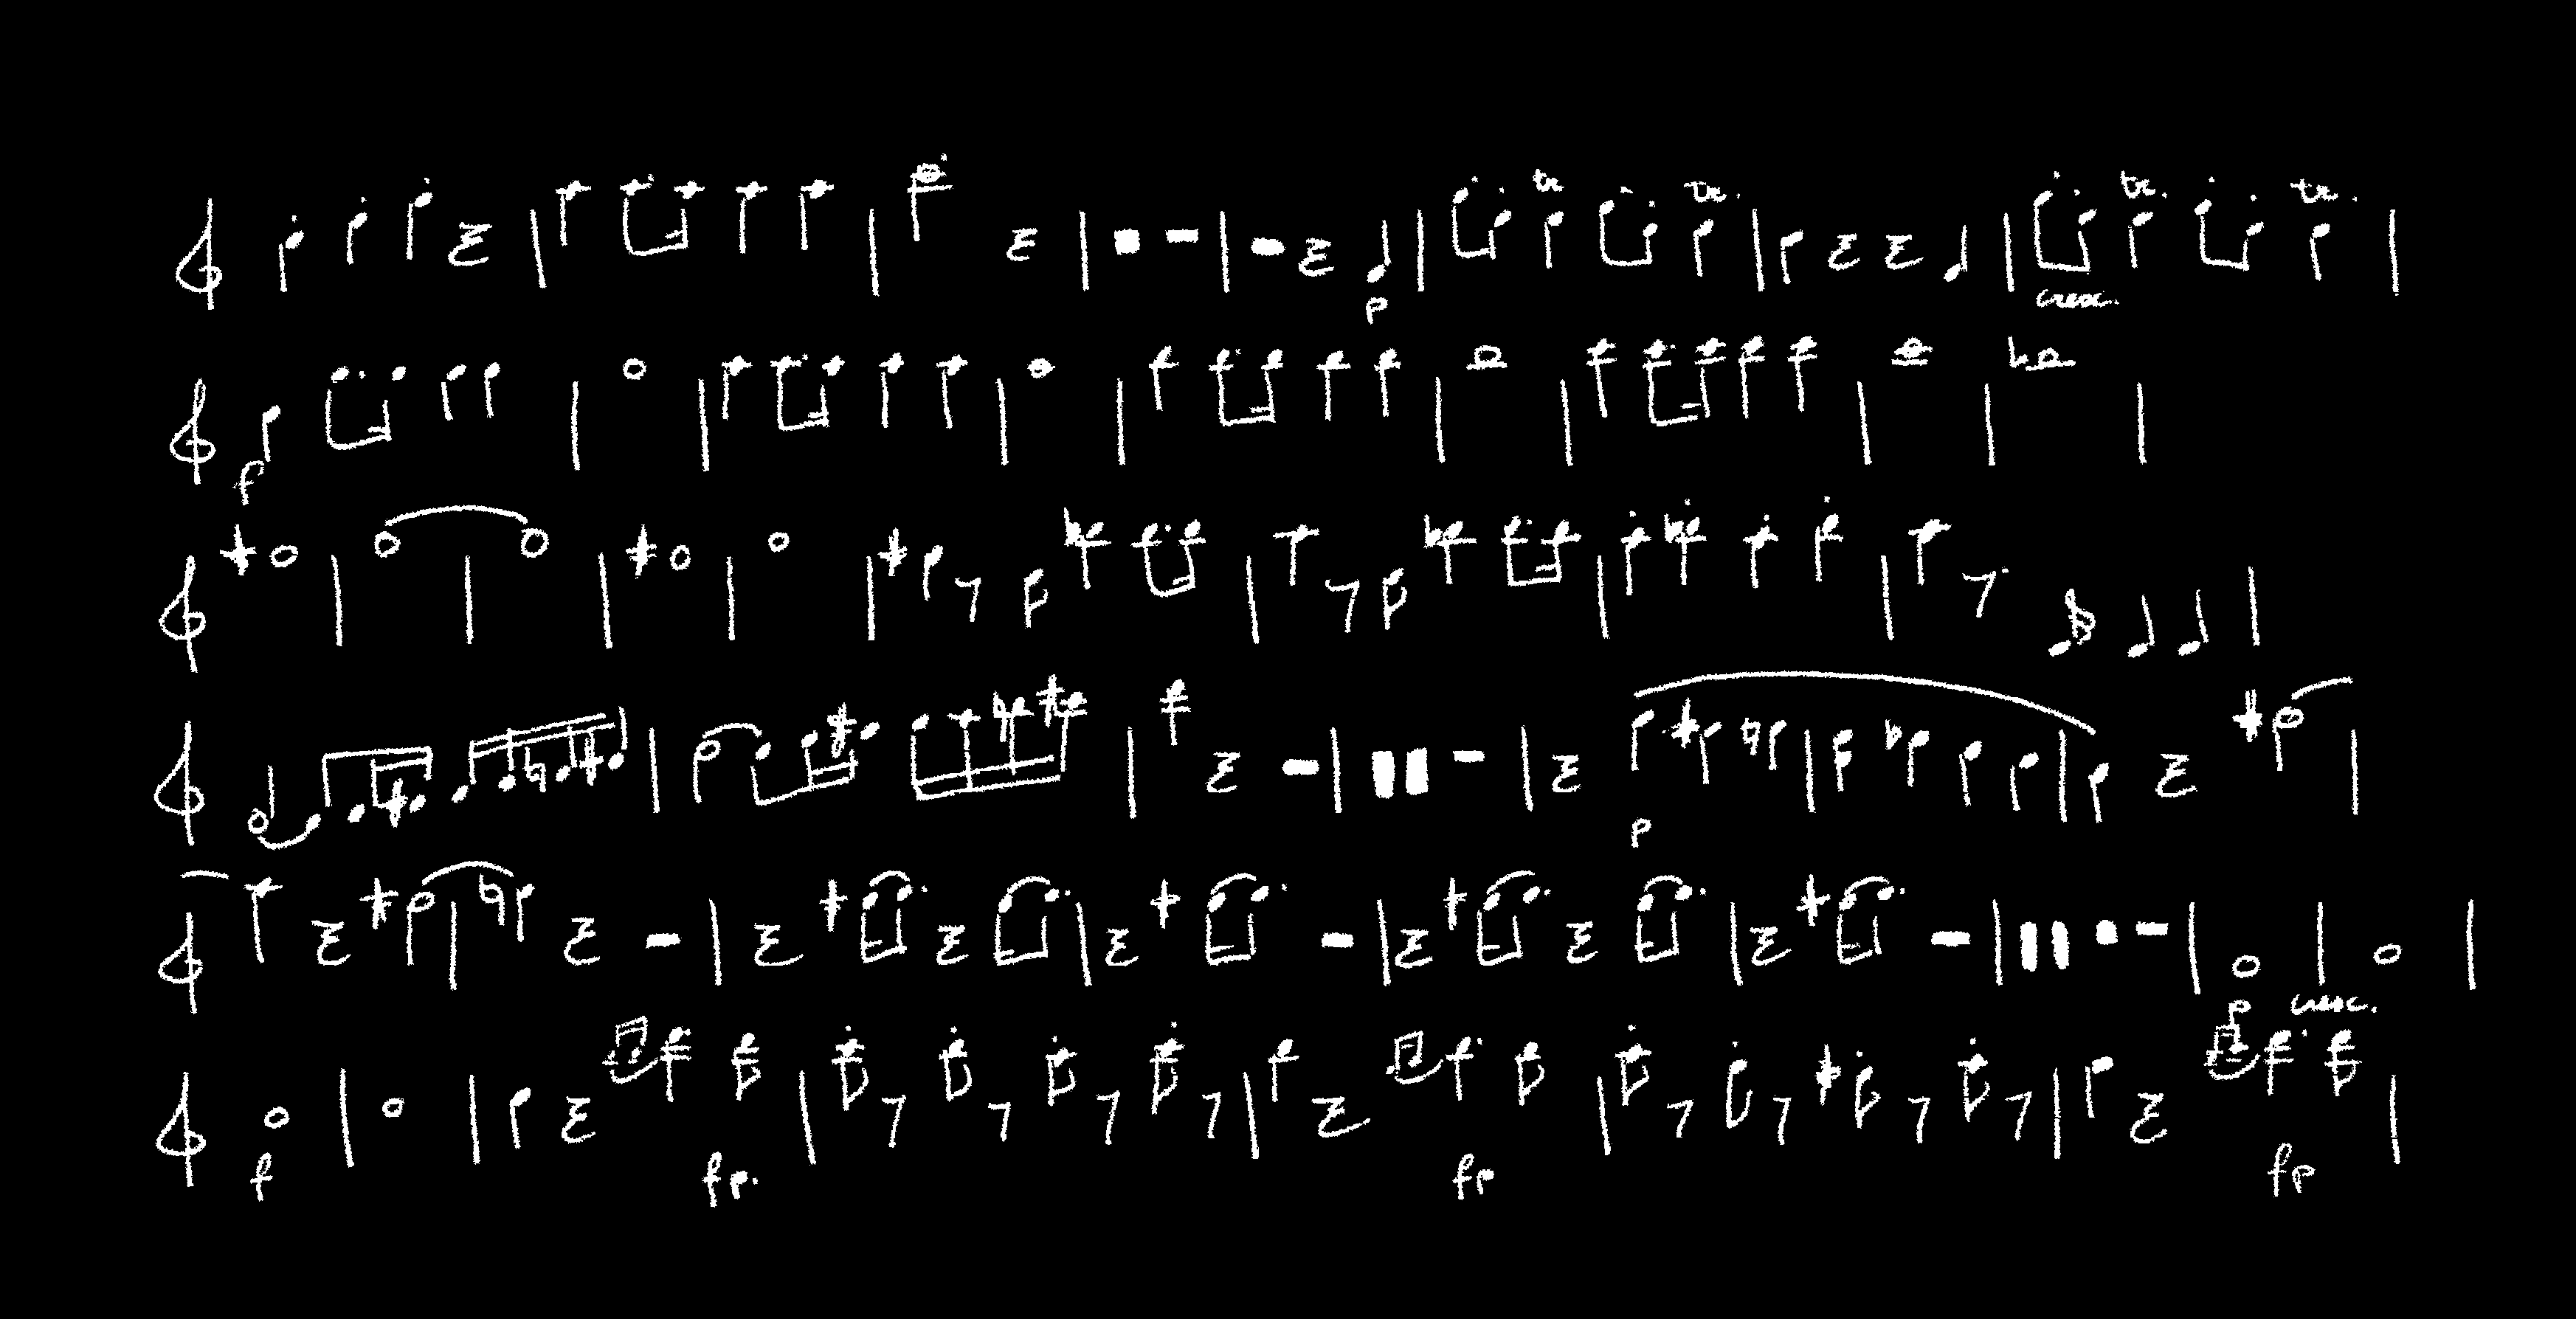 tr tr. tr. tr.
p cresc.
f
p
p cresc.
f fp. fp fp